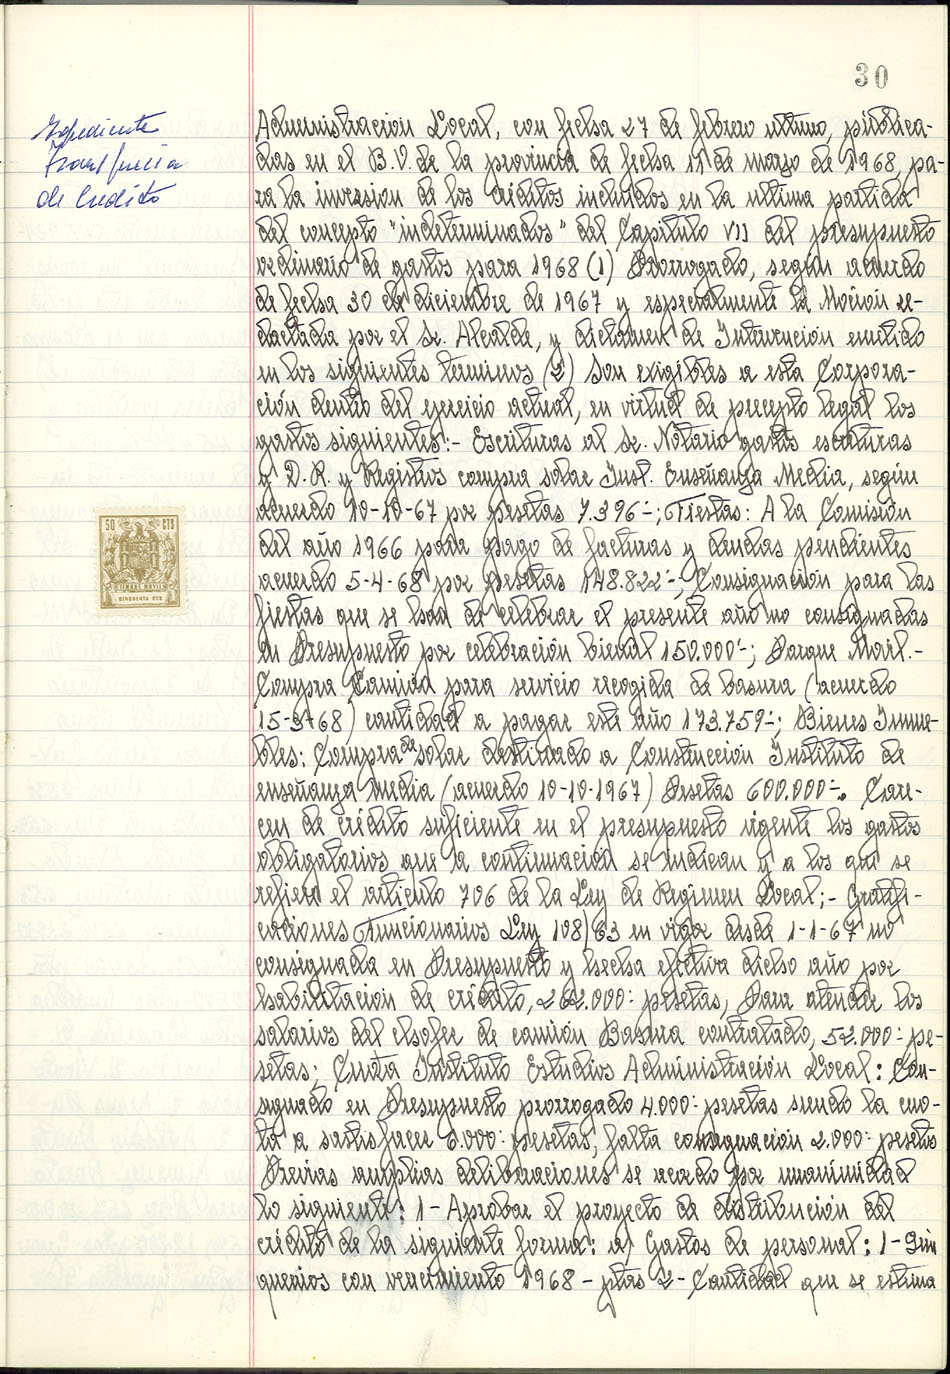 30
Expediente
Transferencia
de Credito
Administración Local, con fecha 27 de febrero ultimo, publica-
das en el B.O. de la provincia de fecha 11 de marzo de 1968, pa-
ra la inversion de los créditos incluidos en la ultima partida
del concepto "indeterminados" del Capítulo VII del presupuesto
ordinario de gastos para 1968 (1) Prorrogado, según acuerdo
de fecha 30 de diciembre de 1967 y especialmente la Moción re-
dactada por el Sr. Alcalde, y dictamen de Intervención emitido
en los siguientes terminos (2) Son exigibles a esta Corpora-
ción dentro del ejercicio actual, en virtud de precepto legal los
gastos siguientes:- Escrituras al Sr. Notario gastos escrituras
y D.R. y Registros compra solar Inst. Enseñanza Media, según
acuerdo 10-10-67 por pesetas 7.396-; Fiestas: A la Comisión
del año 1966 para pago de facturas y deudas pendientes
acuerdo 5-4-68 por pesetas 148.822-; Consignación para las
fiestas que se han de celebrar el presente año no consignadas
en Presupuesto por celebración bienal 150.000-; Parque Movil.-
Compra Camión para servicio recogida de basura (acuerdo
15-3-68) cantidad a pagar este año 173.759-; Bienes Inmue-
bles: Compra de solar destinado a Construcción Instituto de
enseñanza media (acuerdo 10-10-1967) Pesetas 600.000-. Care-
cen de crédito suficiente en el presupuesto vigente los gastos
obligatorios que a continuación se indican y a los que se
refiere el artículo 706 de la Ley de Regimen Local;- Gratifi-
caciones Funcionarios Ley 108/63 en vigor desde 1-1-67 no
consignada en Presupuesto y hecha efectiva dicho año por
habilitación de crédito, 262.000: pesetas, Para atender los
salarios del chofer de camión Basura contratado, 52.000: pe-
setas; Cuota Instituto Estudios Administración Local: Con-
signado en Presupuesto prorrogado 4.000: pesetas siendo la cuo-
ta a satisfacer 6.000: pesetas, falta consignación 2.000: pesetas
Previas amplias deliberaciones se acordó por unanimidad
lo siguiente: 1-Aprobar el proyecto de distribución del
crédito de la siguiente forma: a) Gastos de personal: 1-Quin
quenios con vencimiento 1968 - ptas 2-Cantidad que se estima
50 CTS
TIMBRE MOVIL
CINCUENTA CTS